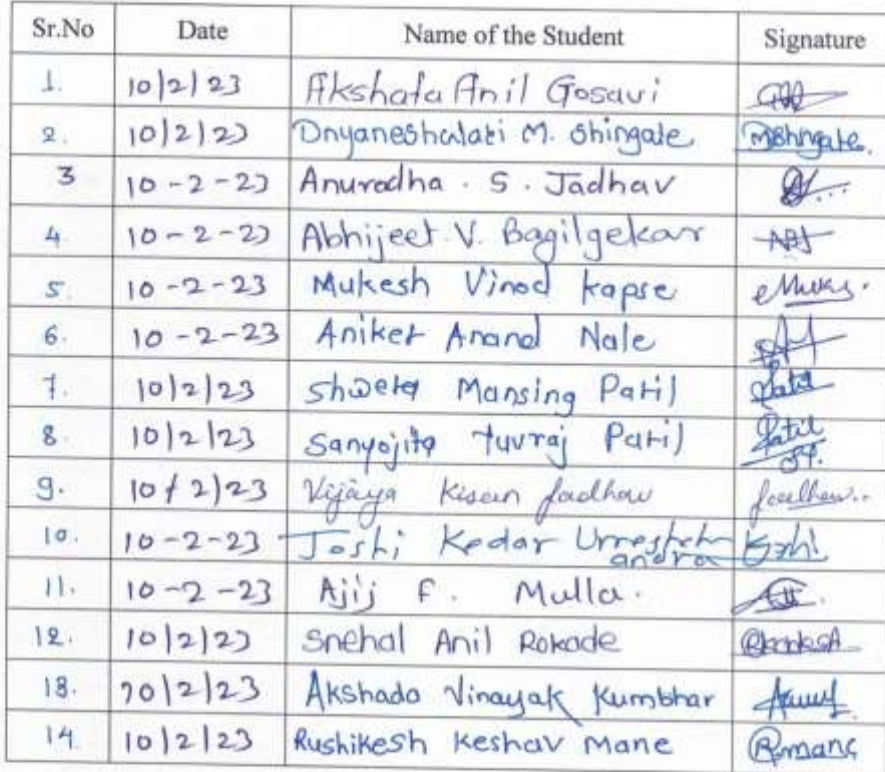 Sr.No Date Name of the Student Signature
1. 10/2/23 Akshata Anil Gosavi
2. 10/2/23 Dnyaneshwari M. Shingate MShingate.
3 10-2-23 Anuradha . S. Jadhav
4. 10-2-23 Abhijeet V. Bagilgekar ABJ
5. 10-2-23 Mukesh Vinod Kapse
6. 10-2-23 Aniket Anand Nale
7. 10/2/23 Shweta Mansing Patil Patil
8. 10/2/23 Sanyojita Yuvraj Patil Patil
9. 10/2/23 Vijaya Kisan Jadhav
10. 10-2-23 Joshi Kedar Umeshch
andra
11. 10-2-23 Ajij F. Mulla.
12. 10/2/23 Snehal Anil Rokade
13. 10/2/23 Akshada Vinayak Kumbhar
14. 10/2/23 Rushikesh Keshav Mane Rmane